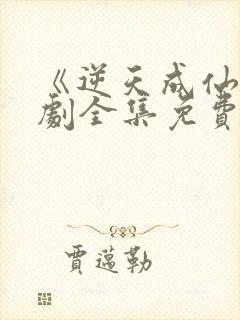 《逆天成仙
劇全集免費
賈邁勒